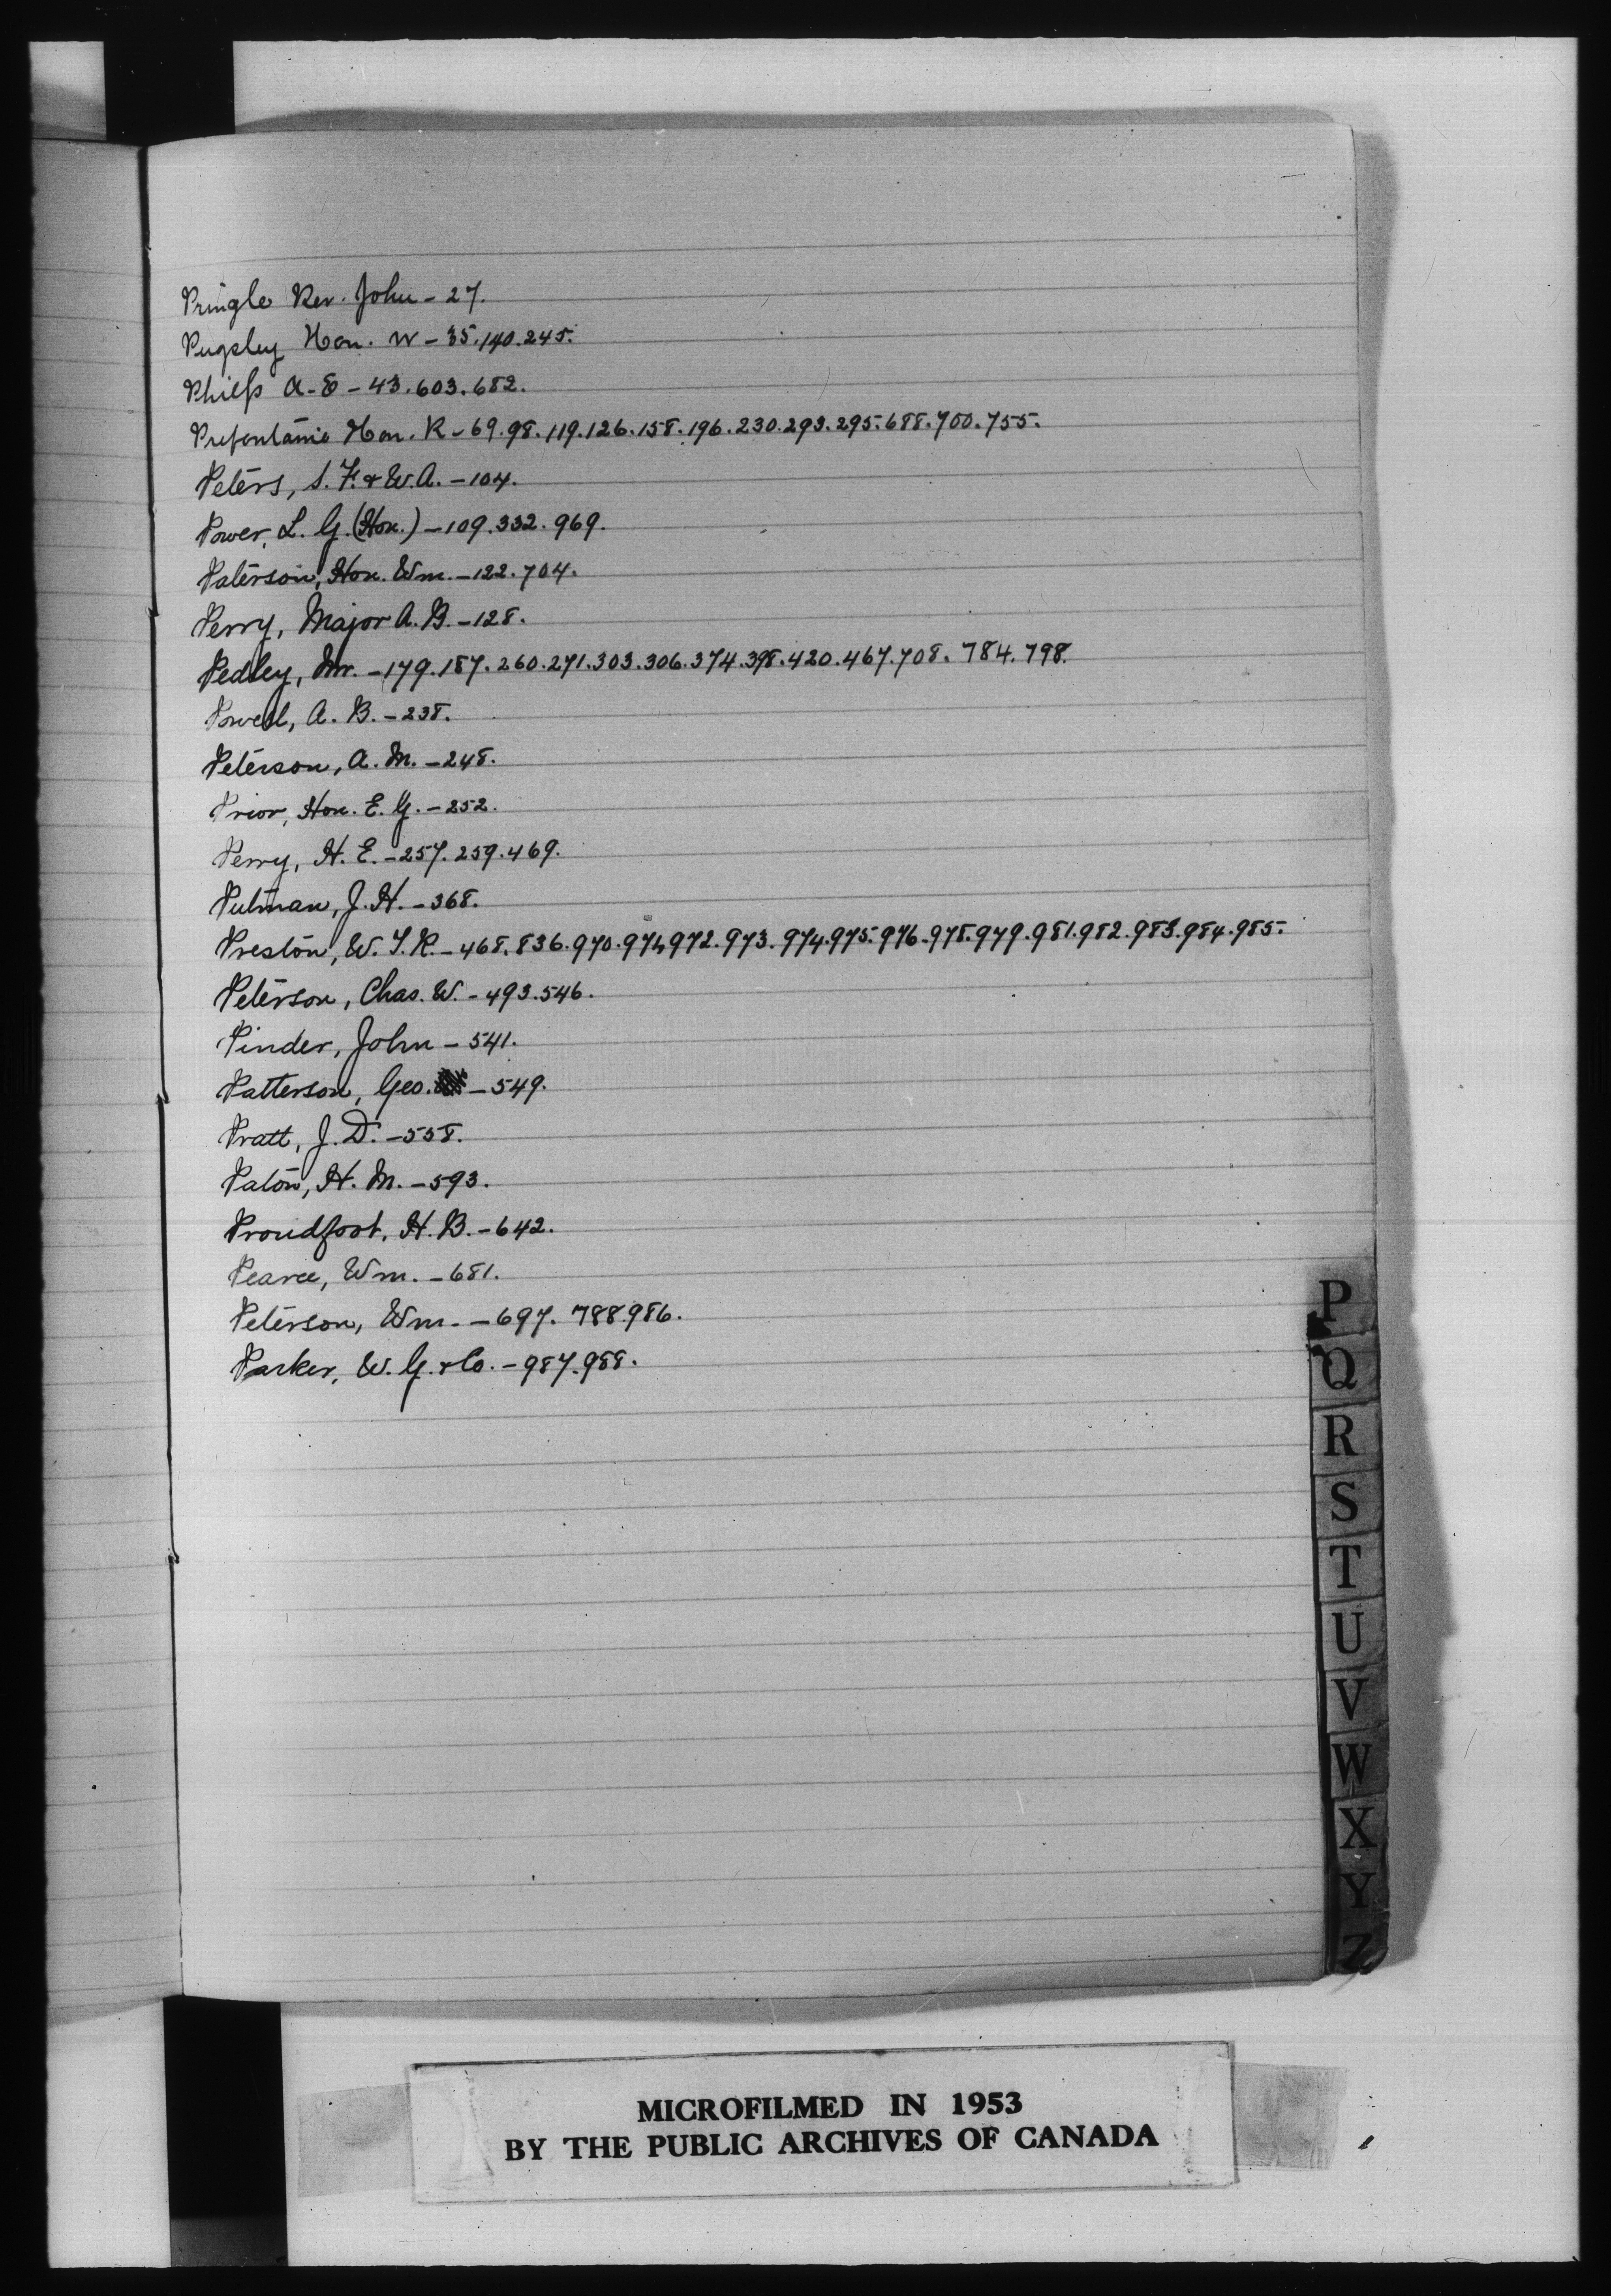 Pringle Rev. John - 27.
Pugsley Hon. W - 35.140.245.
Philp A-E - 43.603.682.
Prefontaine Hon. R - 69.98.119.126.158.196.230.293.295.688.700.755.
Peters, S. F. & W. A. - 104.
Power, L. G. (Hon.) - 109.332.969.
Paterson, Hon. Wm. - 122.704.
Perry, Major A. B. - 128.
Pedley, Mr. - 179.187.260.271.303.306.374.398.420.467.708.784.798.
Powell, A. B. - 238.
Peterson, A. M. - 248.
Prior, Hon. E. G. - 252.
Perry, H. E. - 257.259.469.
Putman, J. H. - 368.
Preston, W. T. R. - 468.836.970.971.972.973.974.975.976.978.979.981.982.983.984.985.
Peterson, Chas. W. - 493.546.
Pinder, John - 541.
Patterson, Geo. - 549.
Pratt, J. D. - 558.
Paton, H. M. - 593.
Proudfoot, H. B. - 642.
Pearce, Wm. - 681.
Peterson, Wm. - 697.788.986.
Parker, W. G. & Co. - 987.988.
P
Q
R
S
T
U
V
W
X
Y
Z
MICROFILMED IN 1953
BY THE PUBLIC ARCHIVES OF CANADA